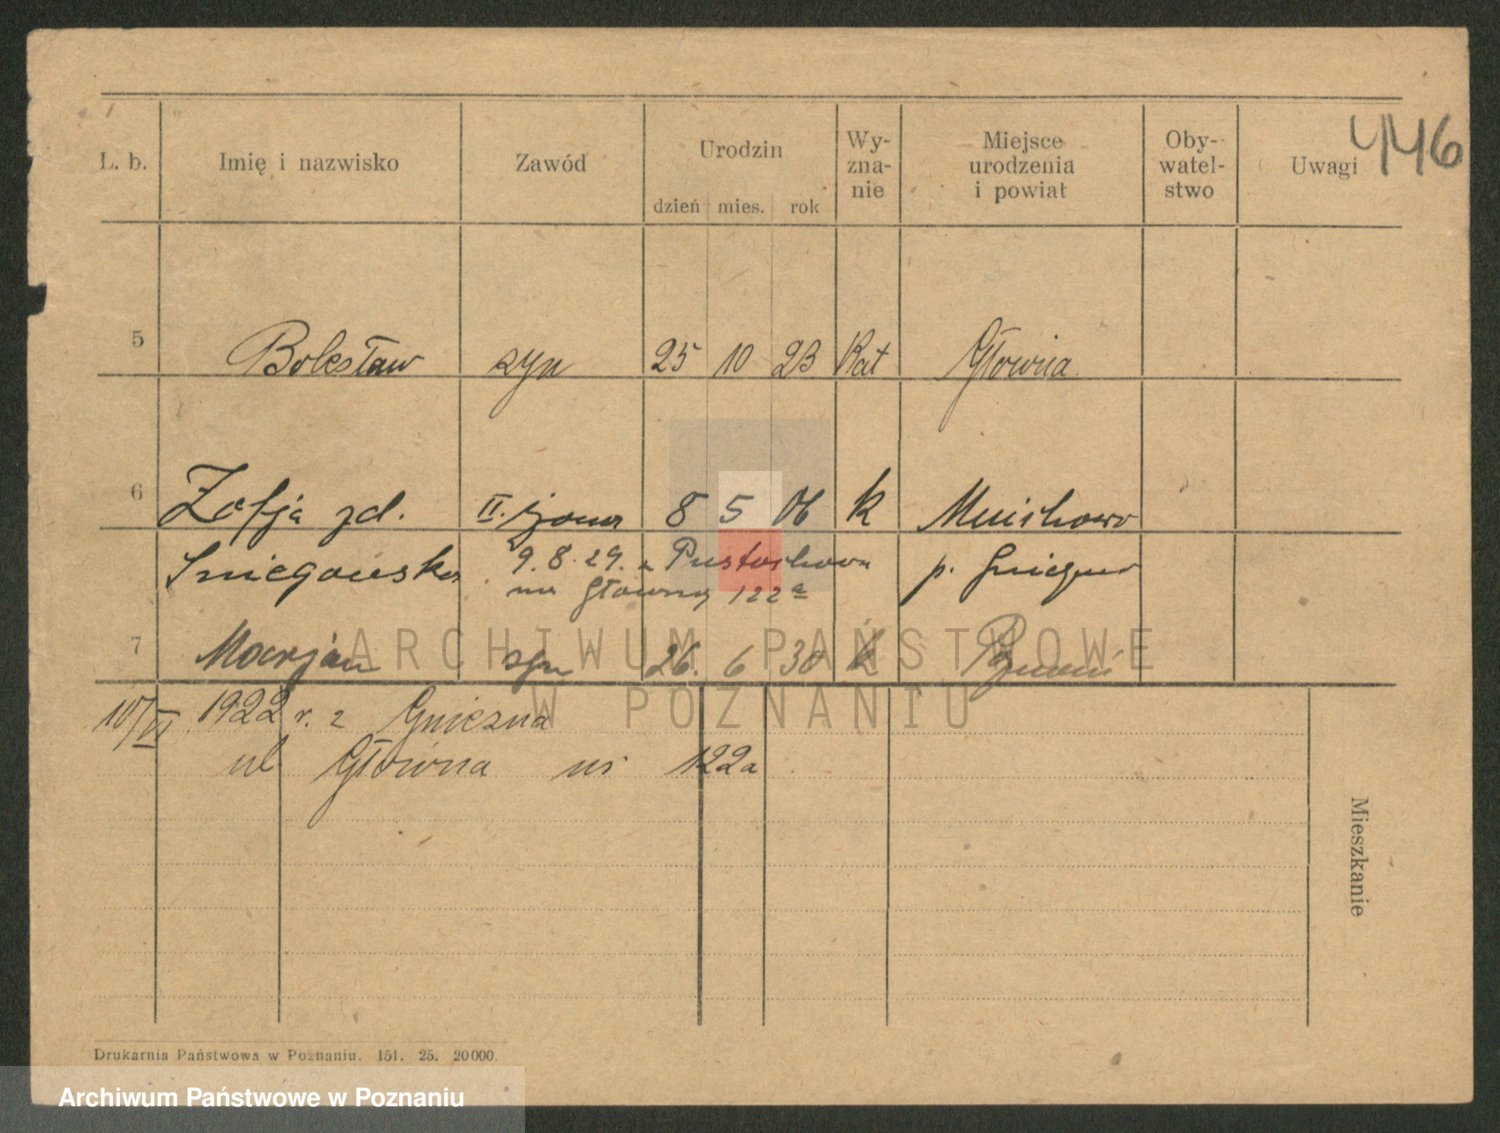 446
L. b. Imię i nazwisko Zawód Urodzin dzień mies. rok Wy-zna-nie Miejsce urodzenia i powiat Oby-watel-stwo Uwagi
5 Bolesław syn 25 10 23 Kat Główna
6 Zofja zd. II. żona 8 5 06 k Mnichowo
Śniegowska 9. 8. 29. z Pustachowa p. Gniezno
na Główną 122a
7 Marjan syn 26. 6 30 k Poznań
ARCHIWUM PAŃSTWOWE
W POZNANIU
10/VI 1922 r. z Gniezna
ul Główna nr 122a
Mieszkanie
Drukarnia Państwowa w Poznaniu. 151. 25. 20000.
Archiwum Państwowe w Poznaniu